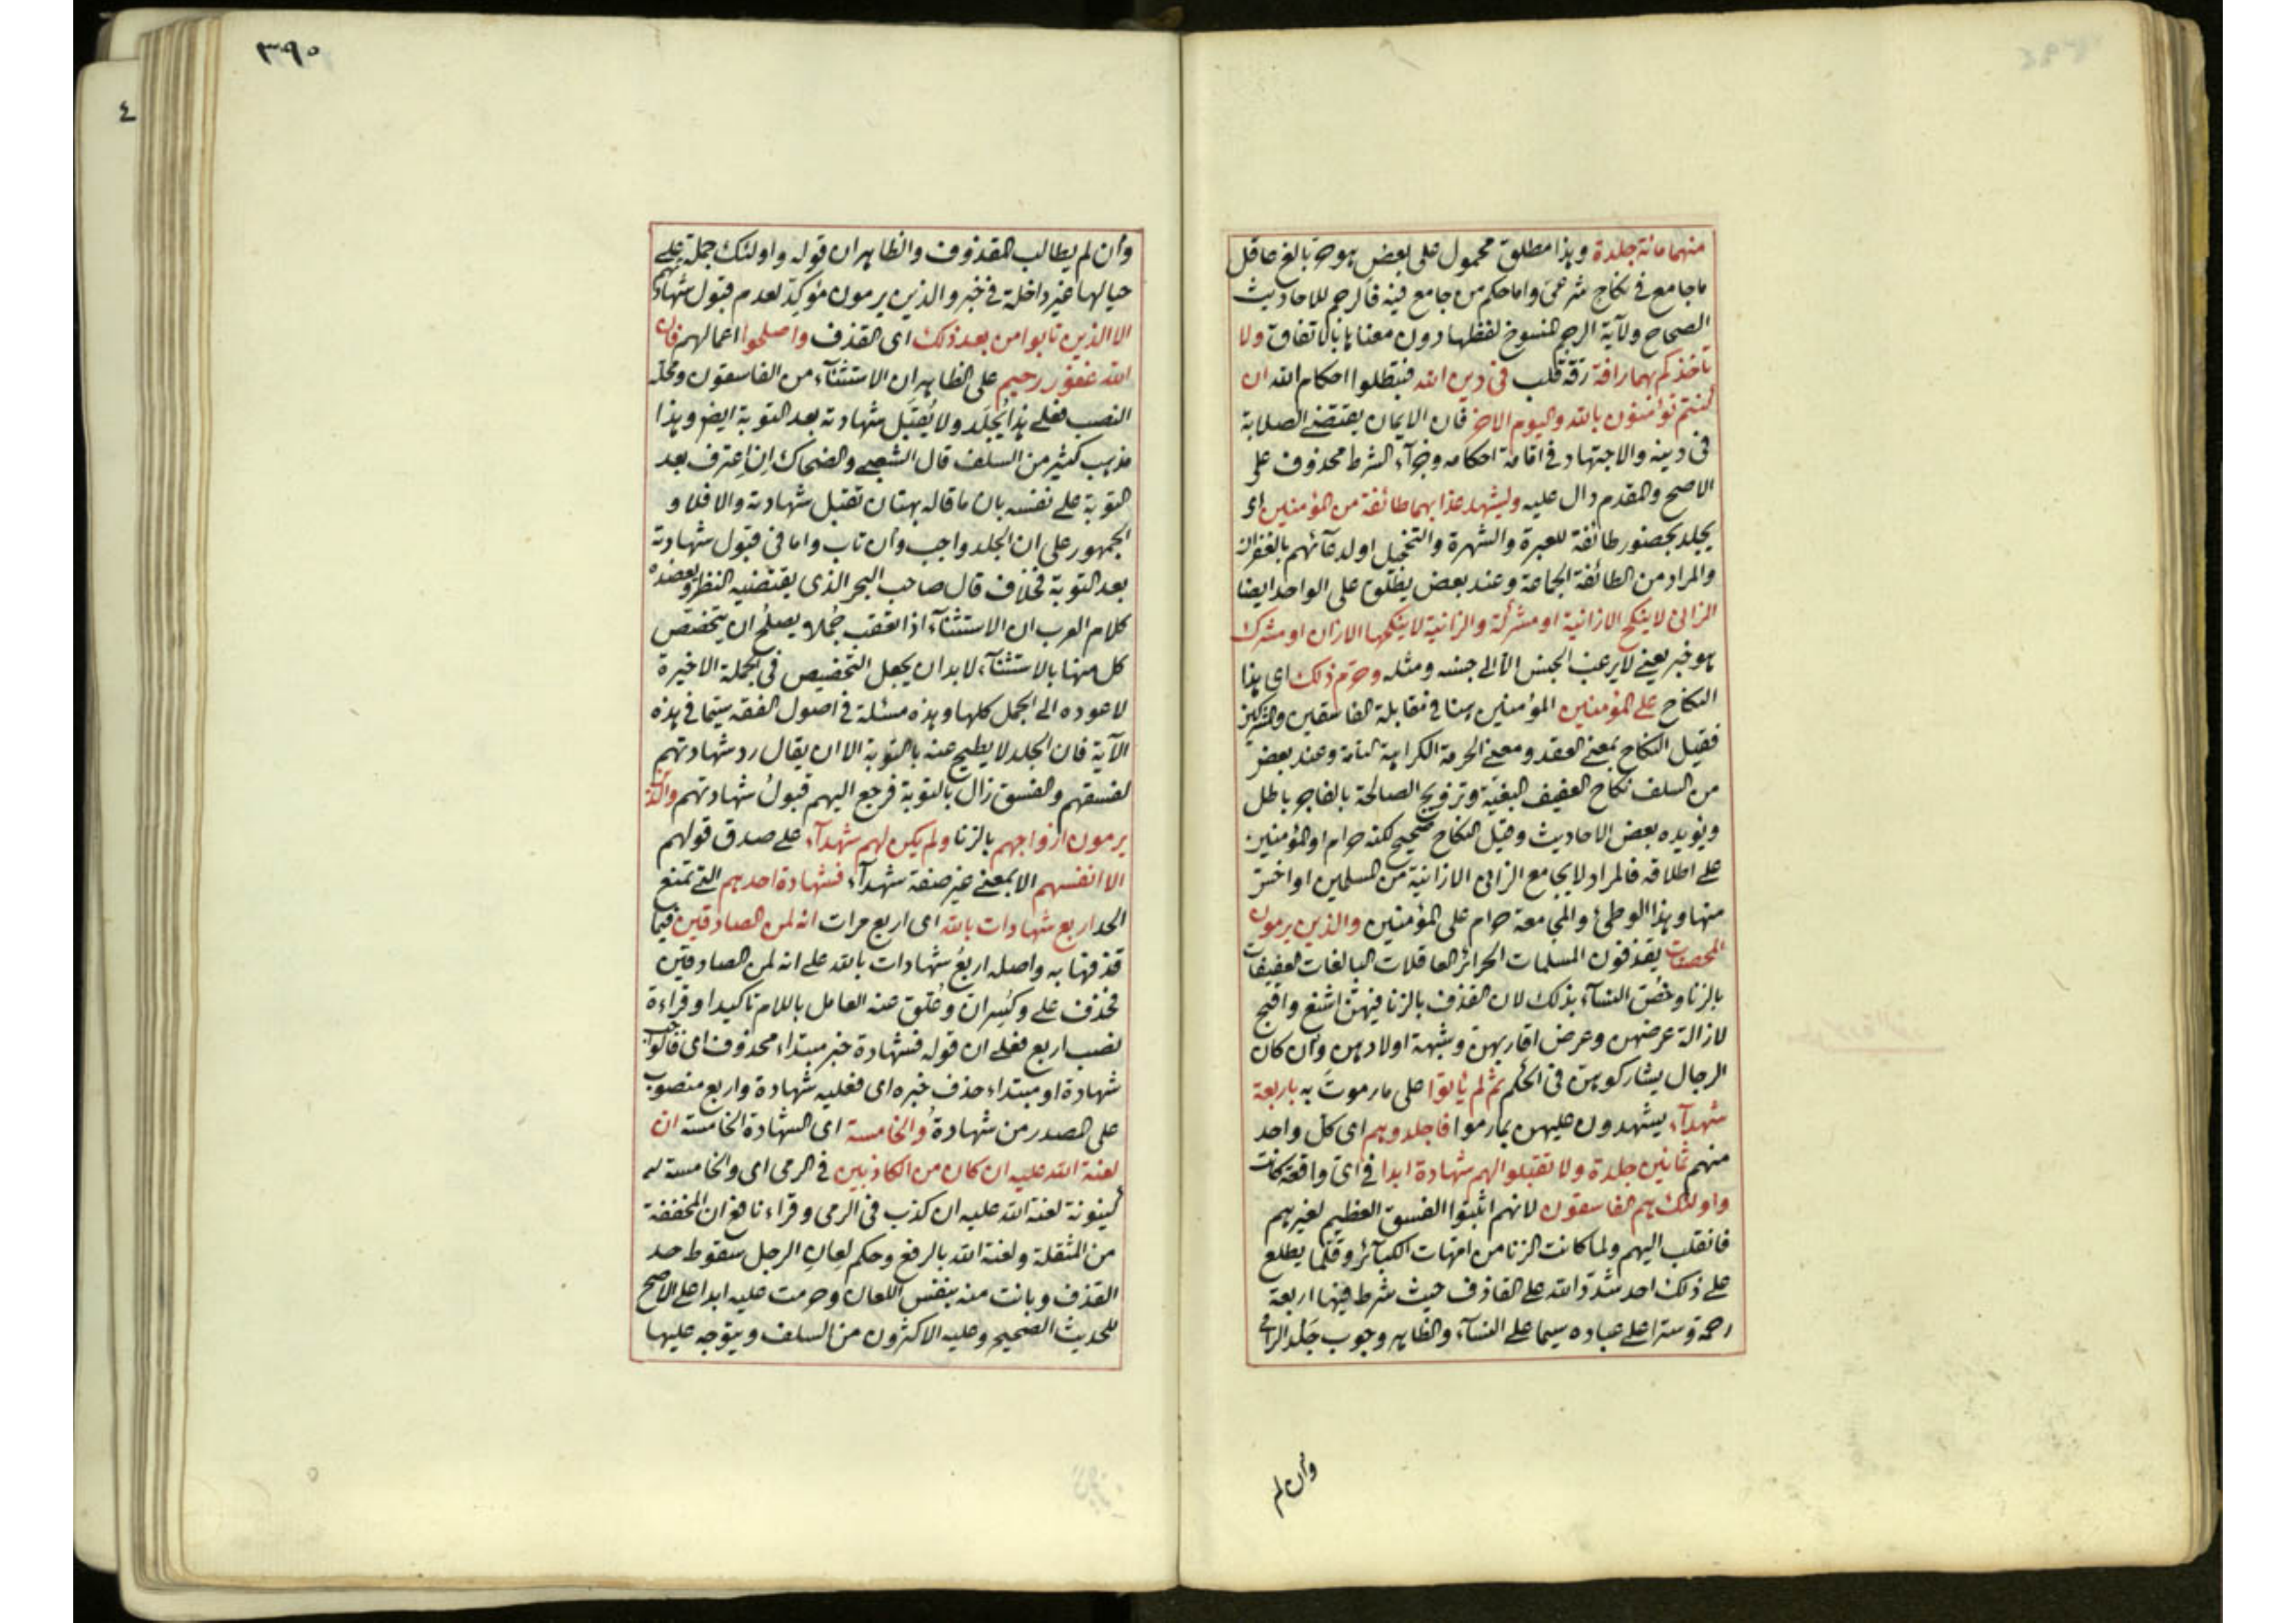 منهما مائة جلدة وهذا مطلق محمول على بعض هو حر بالغ عاقل
ما جامع في نكاح شرعى واما حكم من جامع فيه فالرجم للاحاديث
الصحاح ولآية الرجم المنسوخ لفظها دون معناها بالاتفاق ولا
تأخذكم بهما رافة رقة قلب فى دين الله فتبطلوا احكام الله ان
كنتم تؤمنون بالله واليوم الاخر فان الايمان يقتضى الصلابة
فى دينه والاجتهاد في اقامة احكامه وجزآء الشرط محذوف على
الاصح والمقدم دال عليه وليشهد عذابهما طائفة من المؤمنين اى
يجلد بحضور طائفة للعبرة والشهرة والتخجيل او لدعائهم بالغفران
والمراد من الطائفة الجماعة وعند بعض يطلق على الواحد ايضا
الزانى لا ينكح الا زانية او مشركة والزانية لا ينكحها الا زان او مشرك
هو خبر يعنى لا يرغب الجنس الا الى جنسه ومثله وحرم ذلك اى هذا
النكاح على المؤمنين المؤمنين هنا في مقابلة الفاسقين والمشركين
فقيل النكاح بمعنى العقد ومعنى الحرمة الكراهية التامة وعند بعض
من السلف نكاح العفيف البغية وتزويج الصالحة بالفاجر باطل
ويؤيده بعض الاحاديث وقيل النكاح صحيح لكنه حرام او المؤمنين
على اطلاقه فالمراد لا يجامع الزانى الا زانية من المسلمين او اخس
منها وهذا الوطئ والمجامعة حرام على المؤمنين والذين يرمون
المحصنات يقذفون المسلمات الحرائر العاقلات البالغات العفيفات
بالزنا وخُصّ النسآء بذلك لان القذف بالزنا فيهن اشنع واقبح
لازالة عرضهن وعرض اقاربهن وشبهة اولادهن وان كان
الرجال يشاركوهن فى الحكم ثم لم يأتوا على ما رموت به باربعة
شهدآء يشهدون عليهن بما رموا فاجلدوهم اى كل واحد
منهم ثمانين جلدة ولا تقبلوا لهم شهادة ابدا فى اى واقعة كانت
واولئك هم الفاسقون لانهم اثبتوا الفسق العظيم لغيرهم
فانقلب اليهم ولما كانت الزنا من امهات الكبآئر وقلّما يطلع
على ذلك احد شدّد الله على القاذف حيث شرط فيها اربعة
رحمة وسترا على عباده سيما على النسآء والظاهر وجوب جلد الرامى
وان لم
٣٩٠
٤
وان لم يطالب المقذوف والظاهر ان قوله واولئك جملة على
حيالها غير داخلة في خبر والذين يرمون مؤكد لعدم قبول شهادتهم
الا الذين تابوا من بعد ذلك اى القذف واصلحوا اعمالهم فان
الله غفور رحيم على الظاهر ان الاستثنآء من الفاسقون ومحله
النصب فعلى هذا يُجلَد ولا يُقبَل شهادته بعد التوبة ايضا وهذا
مذهب كثير من السلف قال الشعبى والضحاك اِن اعترف بعد
التوبة على نفسه بان ما قاله بهتان تقبل شهادته والا فلا و
الجمهور على ان الجلد واجب وان تاب واما فى قبول شهادته
بعد التوبة فخلاف قال صاحب البحر الذى يقتضيه النظر ويعضده
كلام العرب ان الاستثنآء اذا تعقب جُملا يصلح ان يتخصص
كل منها بالاستثنآء لابد ان يجعل التخصيص فى الجملة الاخيرة
لا عوده الى الجمل كلها وهذه مسئلة فى اصول الفقه سيما فى هذه
الآية فان الجلد لا يطيح عنه بالتوبة الا ان يقال رد شهادتهم
لفسقهم والفسق زال بالتوبة فرجع اليهم قبولُ شهادتهم والذين
يرمون ازواجهم بالزنا ولم يكن لهم شهدآء على صدق قولهم
الا انفسهم الا بمعنى غير صفة شهدآء فشهادة احدهم التى تمنع
الحد اربع شهادات بالله اى اربع مرات انه لمن الصادقين فيما
قذفها به واصله اربعُ شهادات بالله على انه لمن الصادقين
فحذف على وكُسِر ان وعُلّق عنه العامل باللام تاكيدا وقراءة
نصب اربع فعلى ان قوله فشهادة خبر مبتداء محذوف اى فالواجب
شهادة او مبتداء حذف خبره اى فعليه شهادة واربع منصوب
على المصدر من شهادةُ والخامسة اى الشهادة الخامسة ان
لعنة الله عليه ان كان من الكاذبين فى الرمى اى والخامسة
كينونة لعنة الله عليه ان كذب فى الرمى وقراء نافع ان المخففة
من المثقلة ولعنة الله بالرفع وحكم لعانِ الرجل سقوط حد
القذف وبانت منه بنفس اللعان وحرمت عليه ابدا على الاصح
للحديث الصحيح وعليه الاكثرون من السلف ويتوجه عليها